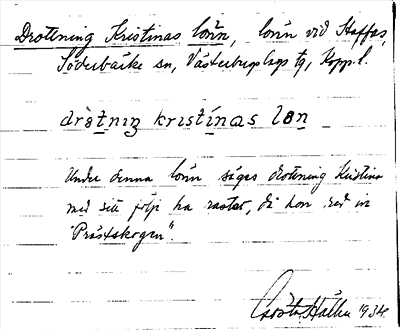 Drottning Kristinas lönn, lönn vid Staffas,
Söderbärke sn, Västerbergslags tg, Kopp. l.
drȯtniŋ kristinas lön
Under denna lönn säges drottning Kristina
med sitt följe ha rastat, då hon red in
"Prästskogen".
Gösta Hallen 1934.